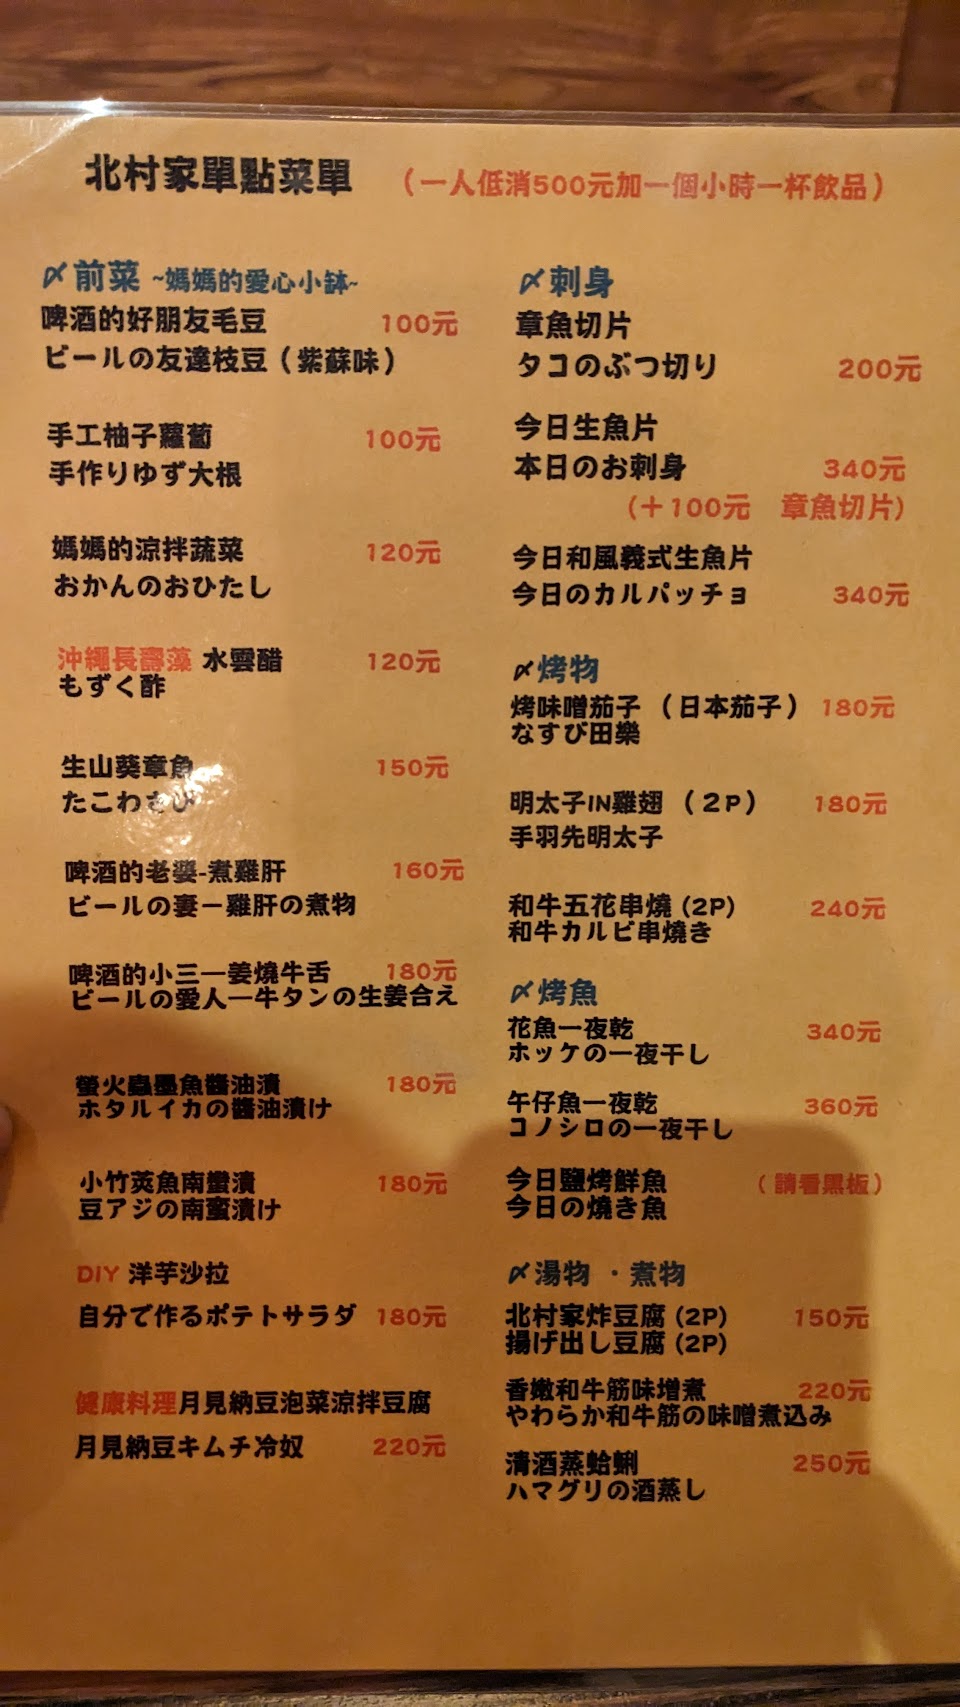 北村家單點菜單 （一人低消500元加一個小時一杯飲品）
〆前菜 ~媽媽的愛心小缽~
啤酒的好朋友毛豆 100元
ビールの友達枝豆（紫蘇味）
手工柚子蘿蔔 100元
手作りゆず大根
媽媽的涼拌蔬菜 120元
おかんのおひたし
沖繩長壽藻 水雲醋 120元
もずく酢
生山葵章魚 150元
たこわさび
啤酒的老婆-煮雞肝 160元
ビールの妻ー雞肝の煮物
啤酒的小三—姜燒牛舌 180元
ビールの愛人—牛タンの生姜合え
螢火蟲墨魚醬油漬 180元
ホタルイカの醬油漬け
小竹莢魚南蠻漬 180元
豆アジの南蜜漬け
DIY 洋芋沙拉
自分で作るポテトサラダ 180元
健康料理月見納豆泡菜涼拌豆腐
月見納豆キムチ冷奴 220元
〆刺身
章魚切片
タコのぶつ切り 200元
今日生魚片
本日のお刺身 340元
（＋100元 章魚切片）
今日和風義式生魚片
今日のカルパッチョ 340元
〆烤物
烤味噌茄子 （日本茄子） 180元
なすび田樂
明太子IN雞翅 （2P） 180元
手羽先明太子
和牛五花串燒 (2P) 240元
和牛カルビ串燒き
〆烤魚
花魚一夜乾 340元
ホッケの一夜干し
午仔魚一夜乾 360元
コノシロの一夜干し
今日鹽烤鮮魚 （請看黑板）
今日の燒き魚
〆湯物 ・煮物
北村家炸豆腐 (2P) 150元
揚げ出し豆腐 (2P)
香嫩和牛筋味增煮 220元
やわらか和牛筋の味噌煮込み
清酒蒸蛤蜊 250元
ハマグリの酒蒸し